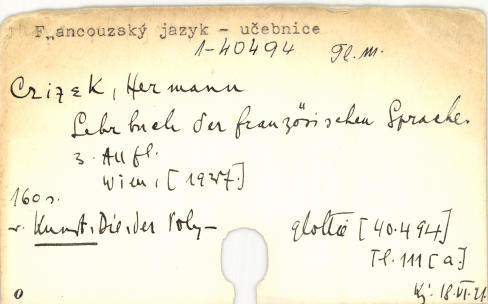 Francouzský jazyk - učebnice
1-40494 Tl. m.
Czizek, Hermann
Lehrbuch der französischen Sprache.
3. Aufl.
Wien, [1937.]
160 s.
v. Kunst, Die, der Poly-
glottie [40.494]
Tl. 111 [a.]
18.VI.
0